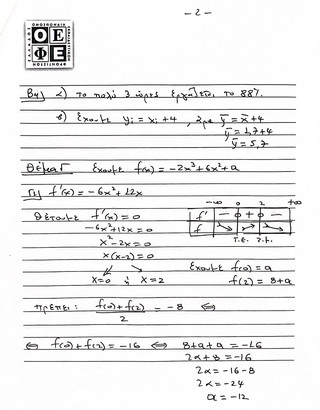 - 2 -
ΟΜΟΣΠΟΝΔΙΑ
ΟΕ
ΦΕ
Β4) α) Το πολύ 3 ώρες εργάζεται το 88%.
β) Έχουμε yi = xi + 4, άρα y̅ = x̅ + 4
y̅ = 1,7 + 4
y̅ = 5,7
Θέμα Γ Έχουμε f(x) = -2x³ + 6x² + α
Γ1) f'(x) = -6x² + 12x
Θέτουμε f'(x) = 0
-6x² + 12x = 0
x² - 2x = 0
x(x-2) = 0
x = 0 ή x = 2
-∞ 0 2 +∞
f' - 0 + 0 -
f ↘ ↗ ↘
Τ.Ε. Τ.Μ.
Έχουμε f(0) = α
f(2) = 8 + α
πρέπει: (f(0) + f(2))/2 = -8 ⇔
⇔ f(0) + f(2) = -16 ⇔ 8 + α + α = -16
2α + 8 = -16
2α = -16 - 8
2α = -24
α = -12